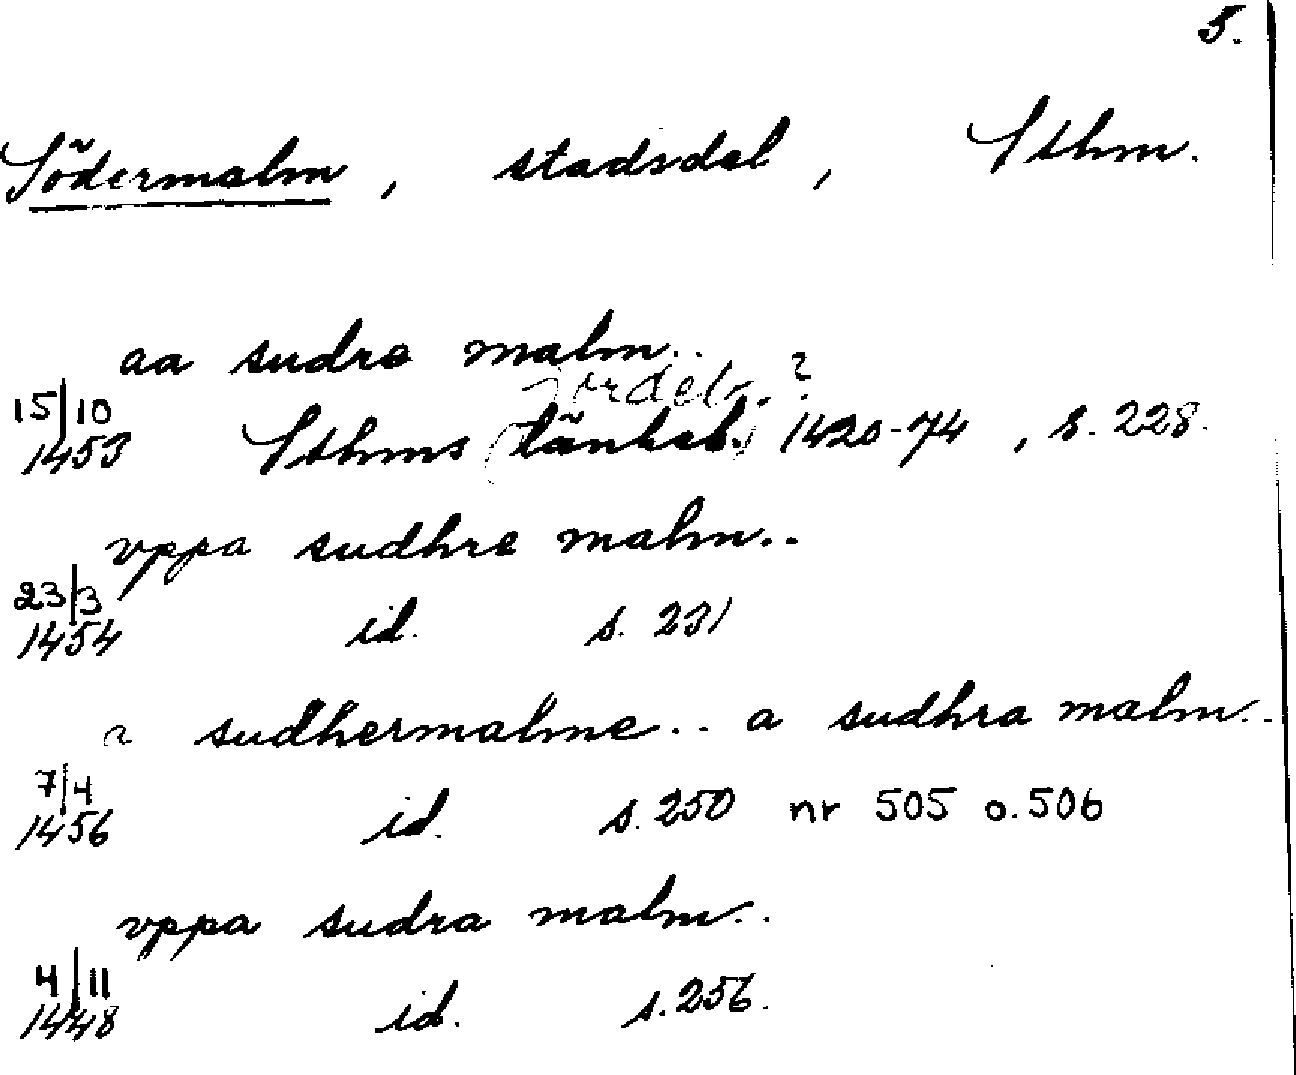 5.
Södermalm, stadsdel, Sthm.
aa sudre malm..
Jordeb.?
15/10 1453 Sthms (tänkeb.) 1420-74, s. 228.
vppa sudhre malm..
23/3 1454 id. s. 231
a sudhermalme.. a sudhra malm..
7/4 1456 id. s. 250 nr 505 o. 506
vppa sudra malm..
4/11 1448 id. s. 256.